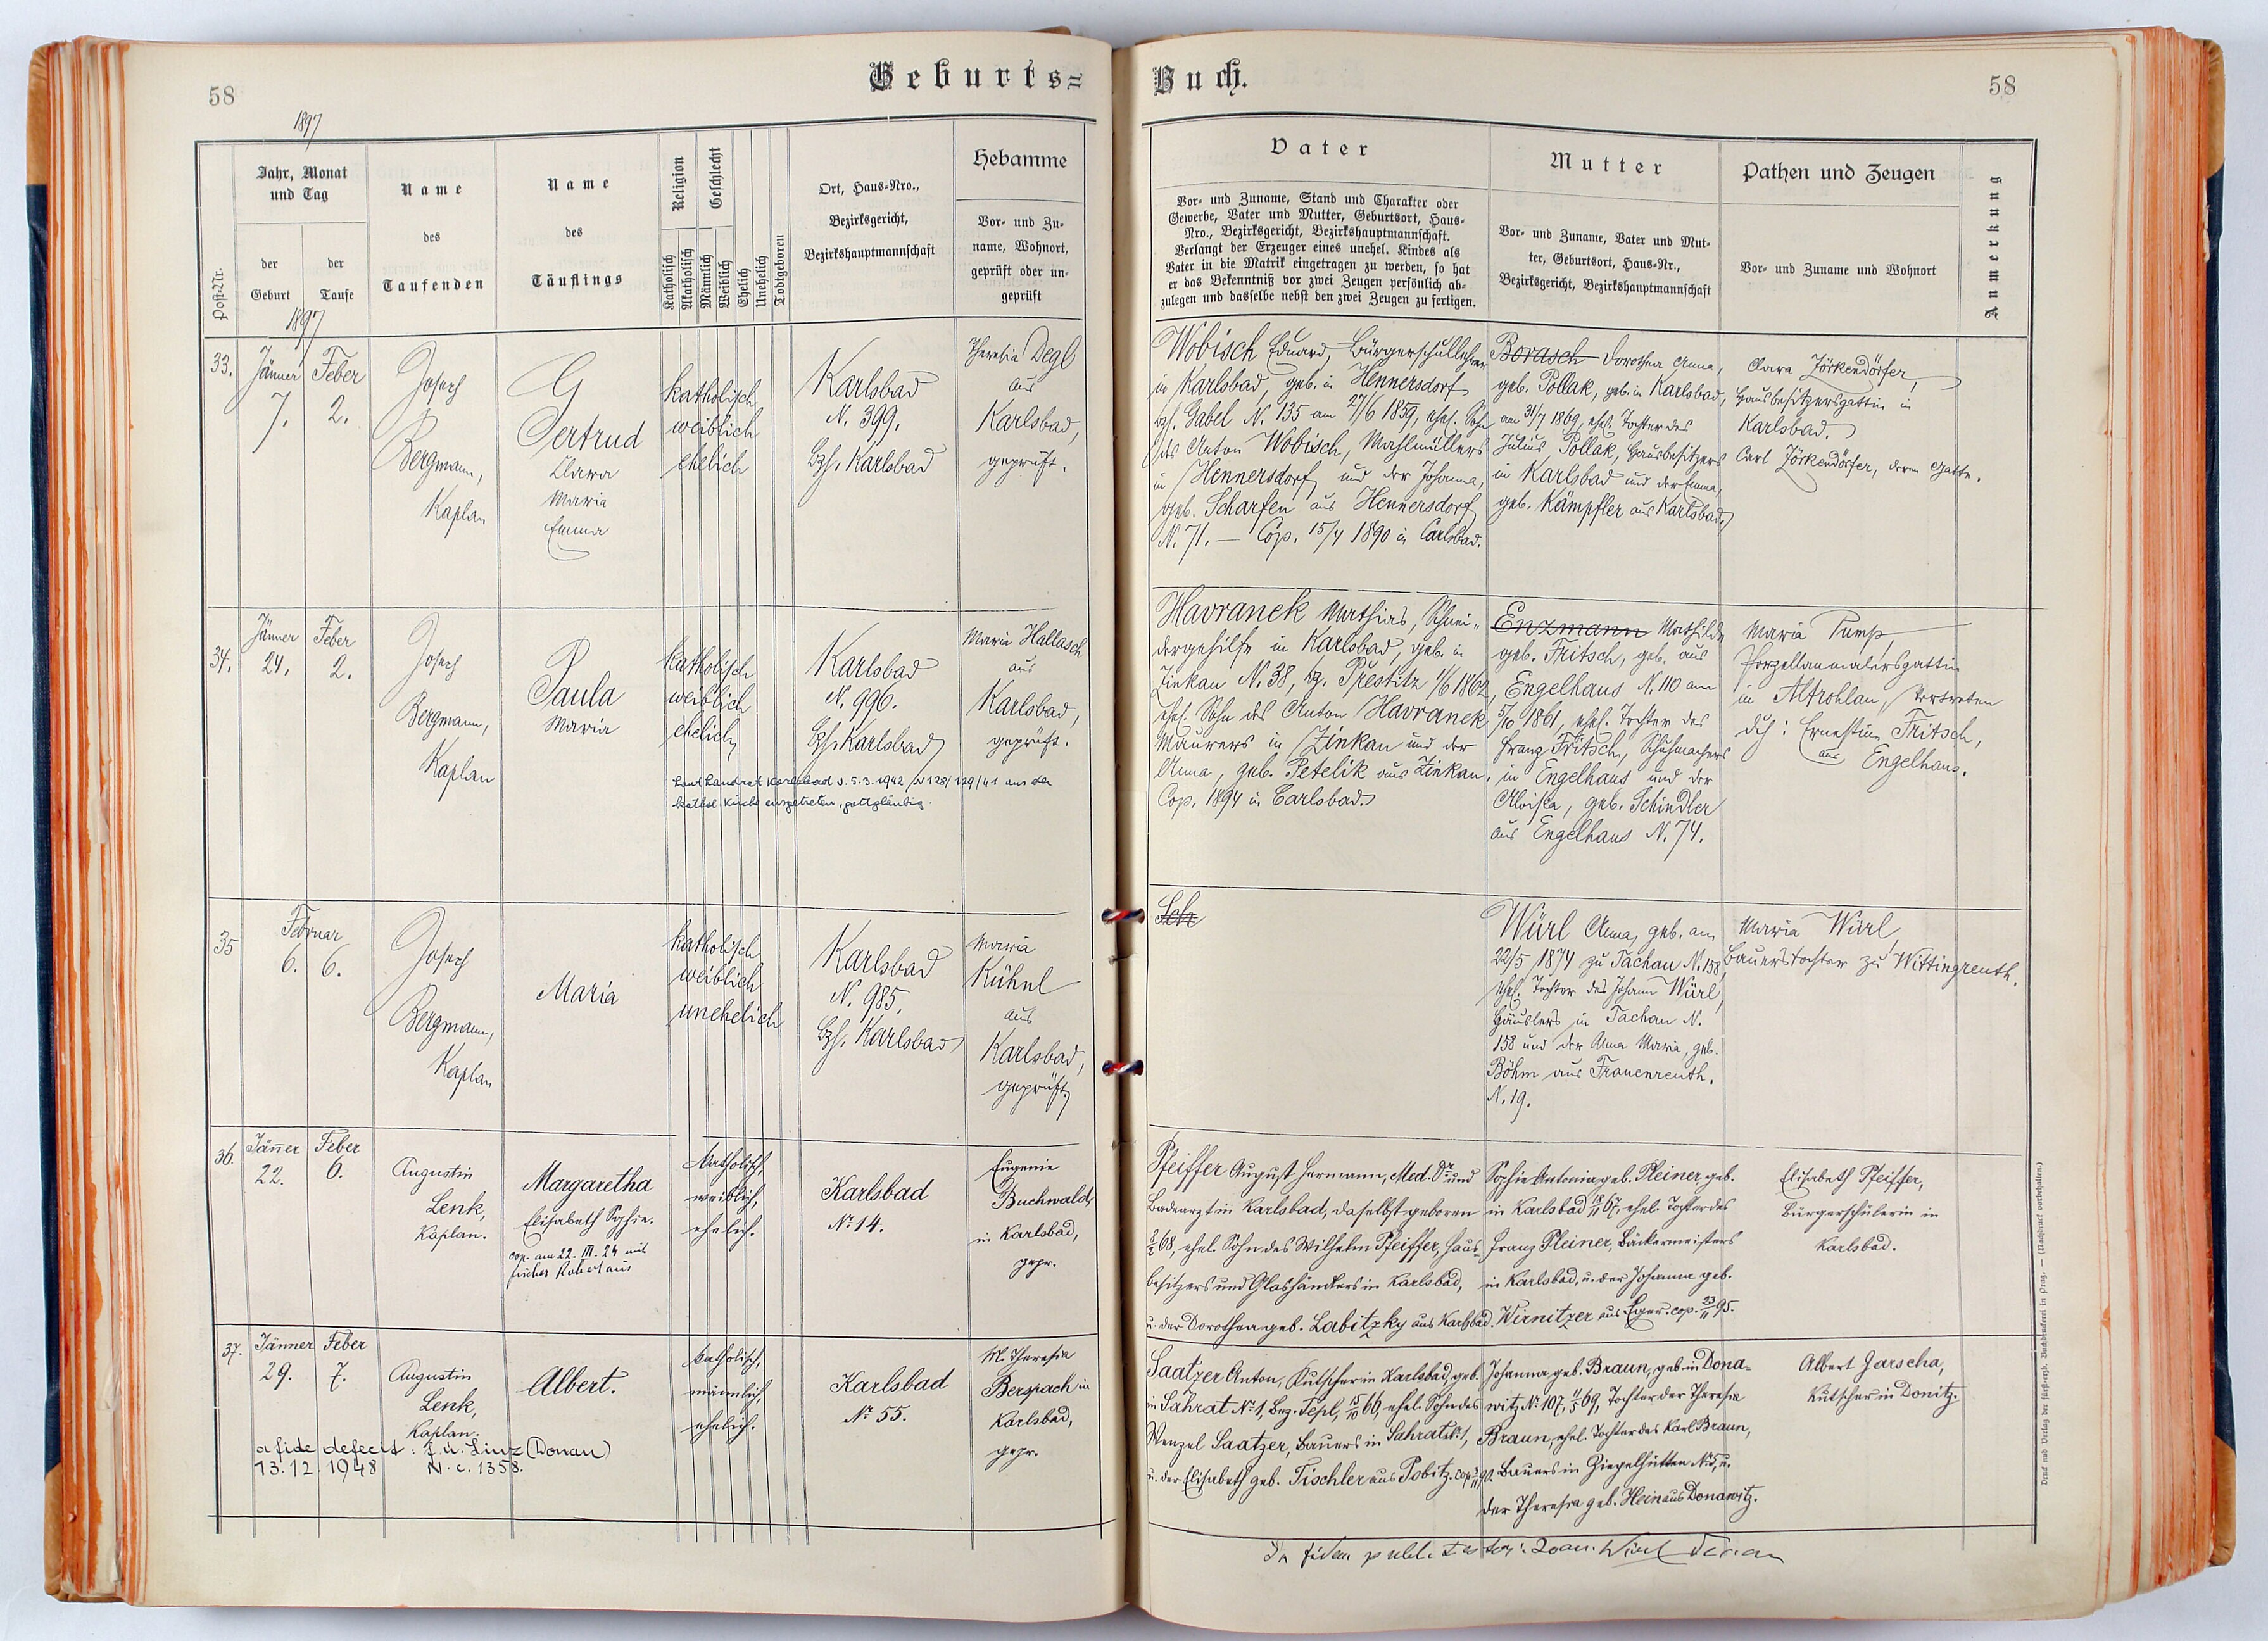 58
Geburts=
1897
Post-Nr.
Jahr, Monat
und Tag
der
Geburt
der
Taufe
1897
Name
des
Taufenden
Name
des
Täuflings
Religion
Geschlecht
Katholisch
Akatholisch
Männlich
Weiblich
Ehelich
Unehelich
Todtgeboren
Ort, Haus-Nro.,
Bezirksgericht,
Bezirkshauptmannschaft
Hebamme
Vor- und Zu-
name, Wohnort,
geprüft oder un-
geprüft
33.
Jänner
7.
Feber
2.
Joseph
Bergmann,
Kaplan
Gertrud
Clara
Maria
Emma
katholisch
weiblich
ehelich
Karlsbad
N. 399.
Bzh. Karlsbad
Theresia Degl
aus
Karlsbad,
geprüft.
34.
Jänner
24.
Feber
2.
Joseph
Bergmann,
Kaplan
Paula
Maria
katholisch
weiblich
ehelich
Karlsbad
N. 996.
Bzh. Karlsbad
Maria Hallasch
aus
Karlsbad,
geprüft.
Laut Landrat Karlsbad v. 5.3.1942 N 128/129/41 aus der
kathol Kirche ausgetreten, gottgläubig.
35
Februar
6. 6.
Joseph
Bergmann,
Kaplan
Maria
katholisch
weiblich
unehelich
Karlsbad
N. 985.
Bzh. Karlsbad
Maria
Kühnl
aus
Karlsbad,
geprüft
36.
Jänner
22.
Feber
6.
Augustin
Lenk,
Kaplan.
Margaretha
Elisabeth Sophie.
cop. am 22. III. 24 mit
katholisch,
weiblich,
ehelich.
Karlsbad
No. 14.
Eugenie
Buchwald,
in Karlsbad,
gepr.
37.
Jänner
29.
Feber
7.
Augustin
Lenk,
Kaplan.
Albert.
katholisch,
männlich,
ehelich.
Karlsbad
No. 55.
M. Theresia
Berspach in
Karlsbad,
gepr.
a fide defecit: J. u. Linz (Donau)
13.12.1948 N. c. 1358.
Buch.
58
Vater
Vor- und Zuname, Stand und Charakter oder
Gewerbe, Vater und Mutter, Geburtsort, Haus-
Nro., Bezirksgericht, Bezirkshauptmannschaft.
Verlangt der Erzeuger eines unehel. Kindes als
Vater in die Matrik eingetragen zu werden, so hat
er das Bekenntniß vor zwei Zeugen persönlich ab-
zulegen und dasselbe nebst den zwei Zeugen zu fertigen.
Mutter
Vor- und Zuname, Vater und Mut-
ter, Geburtsort, Haus-Nr.,
Bezirksgericht, Bezirkshauptmannschaft
Pathen und Zeugen
Vor- und Zuname und Wohnort
Anmerkung
Wobisch Eduard, Bürgerschullehrer
in Karlsbad, geb. in Hennersdorf
bzh. Gabel N. 135 am 27/6 1859, ehel. Sohn
des Anton Wobisch, Mahlmüllers
in Hennersdorf und der Johanna,
geb. Scharfen aus Hennersdorf
N. 71. — Cop. 15/4 1890 in Carlsbad.
Borasch Dorothea Anna,
geb. Pollak, geb. in Karlsbad,
am 31/7 1869, ehel. Tochter des
Julius Pollak, Hausbesitzers
in Karlsbad und der Emma,
geb. Kämpfler aus Karlsbad.
Clara Jörkendörfer,
Hausbesitzersgattin in
Karlsbad.
Carl Jörkendörfer, deren Gatte.
Havranek Mathias, Schnei-
dergehilfe in Karlsbad, geb. in
Zinkau N. 38, bz. Přestitz 1/6 1862,
ehel. Sohn des Anton Havranek
Maurers in Zinkau und der
Anna, geb. Petelik aus Zinkau.
Cop. 1894 in Carlsbad.
Enzmann Mathilde
geb. Fritsch, geb. aus
Engelhaus N. 110 am
5/10 1861, ehel. Tochter des
Franz Fritsch, Schuhmachers
in Engelhaus und der
Aloisia, geb. Schindler
aus Engelhaus N. 74.
Maria Pump,
Porzellanmalersgattin
in Altrohlau, vertreten
dch: Ernestine Fritsch,
aus Engelhaus.
Sch
Würl Anna, geb. am
22/5 1874 zu Tachau N. 158
ehel. Tochter des Johann Würl,
Häuslers in Tachau N.
158 und der Anna Maria, geb.
Böhm aus Frauenreuth.
N. 19.
Maria Würl,
Bauerstochter zu Wittingreuth.
Pfeiffer August Hermann, Med. Dr. und
Badearzt in Karlsbad, daselbst geboren
68, ehel. Sohn des Wilhelm Pfeiffer, Haus-
besitzers und Glashändlers in Karlsbad,
u. der Dorothea geb. Labitzky aus Karlsbad.
Sophie Antonia geb. Pleiner, geb.
in Karlsbad 18/11 67, ehel. Tochter des
Franz Pleiner, Bäckermeisters
in Karlsbad, u. der Johanna geb.
Wirnitzer aus Eger. cop. 23/11 95.
Elisabeth Pfeiffer,
Bürgerschülerin in
Karlsbad.
Saatzer Anton, Kutscher in Karlsbad, geb.
in Sahrat No. 1, Bez. Tepl, 15/10 66, ehel. Sohn des
Wenzel Saatzer, Bauers in Sahrat No. 1,
u. der Elisabeth geb. Tischler aus Pobitz. cop. 90.
Johanna geb. Braun, geb. in Dona-
witz No. 107, 69, Tochter der Theresia
Braun, ehel. Tochter des Karl Braun,
Bauers in Ziegelhütten No. 5, u.
der Theresia geb. Hein aus Donawitz.
Albert Garscha,
Kutscher in Donitz.
Druck und Verlag der fürsterzb. Buchdruckerei in Prag. — (Nachdruck vorbehalten.)